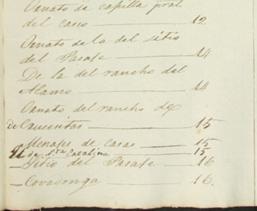 Ornato de capilla pral
del casco 12
Ornato de la del sitio
del Pasaje 14
De la del rancho del
Alamo 14
Ornato del rancho de
de Cauentas 15
Menajes de casas 15
de Sta Catalina 15
Sitio del Pasaje 16
Covadonga 16